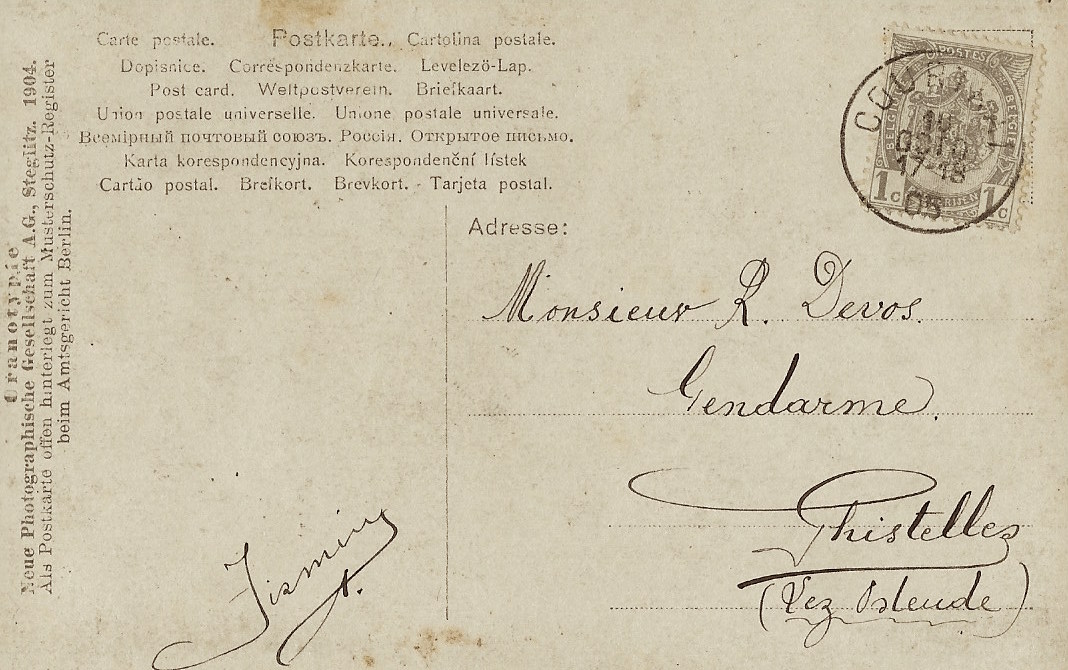 Carte postale. Postkarte. Cartolina postale.
Dopisnice. Correspondenzkarte. Levelező-Lap.
Post card. Weltpostverein. Briefkaart.
Union postale universelle. Unione postale universale.
Всемірный почтовый союзъ. Россія. Открытое письмо.
Karta korespondencyjna. Korespondenční lístek
Cartão postal. Brefkort. Brevkort. - Tarjeta postal.
Oranotypie
Neue Photographische Gesellschaft A.G., Steglitz. 1904.
Als Postkarte offen hinterlegt zum Musterschutz-Register
beim Amtsgericht Berlin.
POSTES
BELGIQUE BELGIË
1c 1c
17-18
05
Adresse:
Monsieur R. Devos.
Gendarme.
Ghistelles
(Lez Ostende)